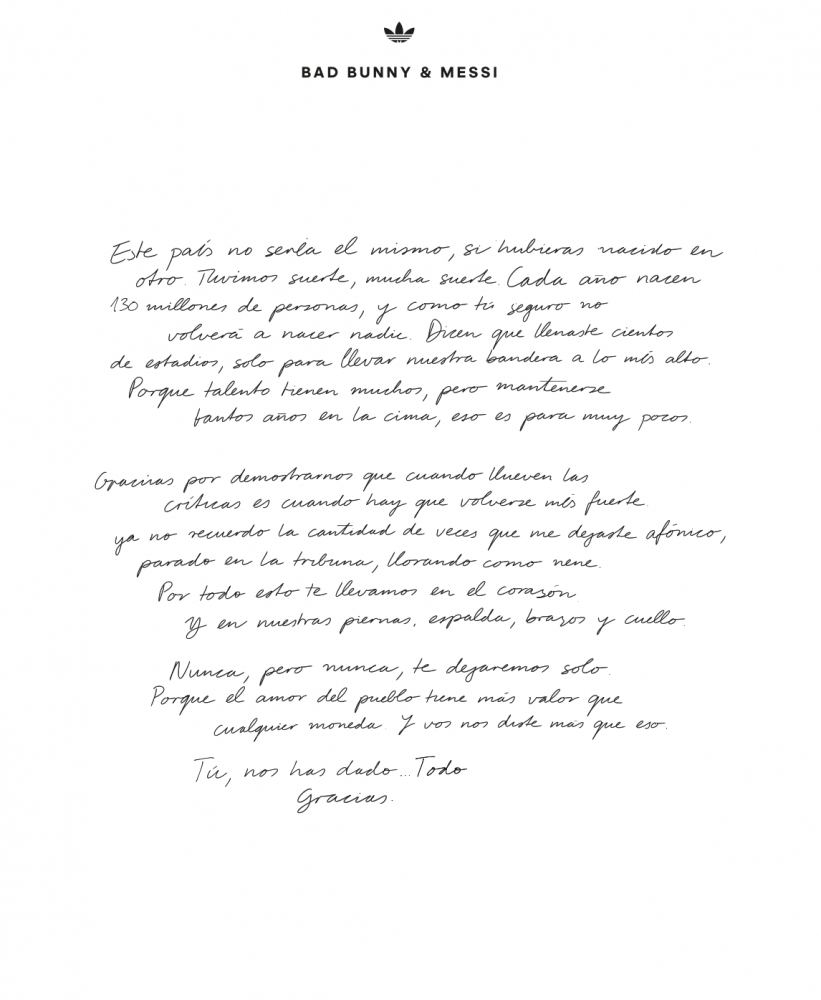 BAD BUNNY & MESSI
Este país no sería el mismo, si hubieras nacido en
otro. Tuvimos suerte, mucha suerte. Cada año nacen
130 millones de personas, y como tú seguro no
volverá a nacer nadie. Dicen que llenaste cientos
de estadios, solo para llevar nuestra bandera a lo más alto.
Porque talento tienen muchos, pero mantenerse
tantos años en la cima, eso es para muy pocos.
Gracias por demostrarnos que cuando llueven las
críticas es cuando hay que volverse más fuerte.
ya no recuerdo la cantidad de veces que me dejaste afónico,
parado en la tribuna, llorando como nene.
Por todo esto te llevamos en el corazón
Y en nuestras piernas, espalda, brazos y cuello.
Nunca, pero nunca, te dejaremos solo.
Porque el amor del pueblo tiene más valor que
cualquier moneda. Y vos nos diste más que eso.
Tú, nos has dado... Todo
Gracias.